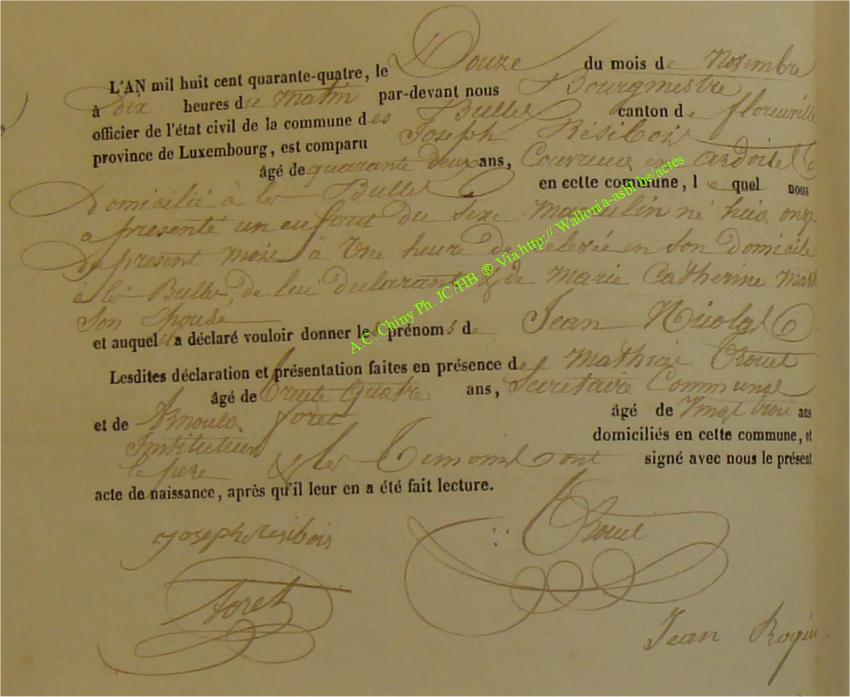 L'AN mil huit cent quarante-quatre, le Douze du mois de Novembre
à Dix heures du Matin par-devant nous Bourgmestre
officier de l'état civil de la commune des Bulles canton de florenville
province de Luxembourg, est comparu Joseph Résibois
âgé de quarante deux ans, Couvreur en ardoise
Domicilié à les Bulles en cette commune, lequel nous
a présenté un enfant du sexe Masculin né hier onze
Du présent mois à Une heure de relevée en son domicile
à les Bulles, de lui declarant & de Marie Catherine
Son Epouse
et auquel il a déclaré vouloir donner les prénoms de Jean Nicolas
Lesdites déclaration et présentation faites en présence de Mathieu
âgé de trente Quatre ans, Secrétaire Communal
et de Arnould foret âgé de Vingt trois ans
Instituteur domiciliés en cette commune, et
le père & les Témoins ont signé avec nous le présent
acte de naissance, après qu'il leur en a été fait lecture.
Joseph Resibois
foret
Jean
A.C. Chiny Ph. JC /HB ® Via http:// Wallonia-asbl.be/actes